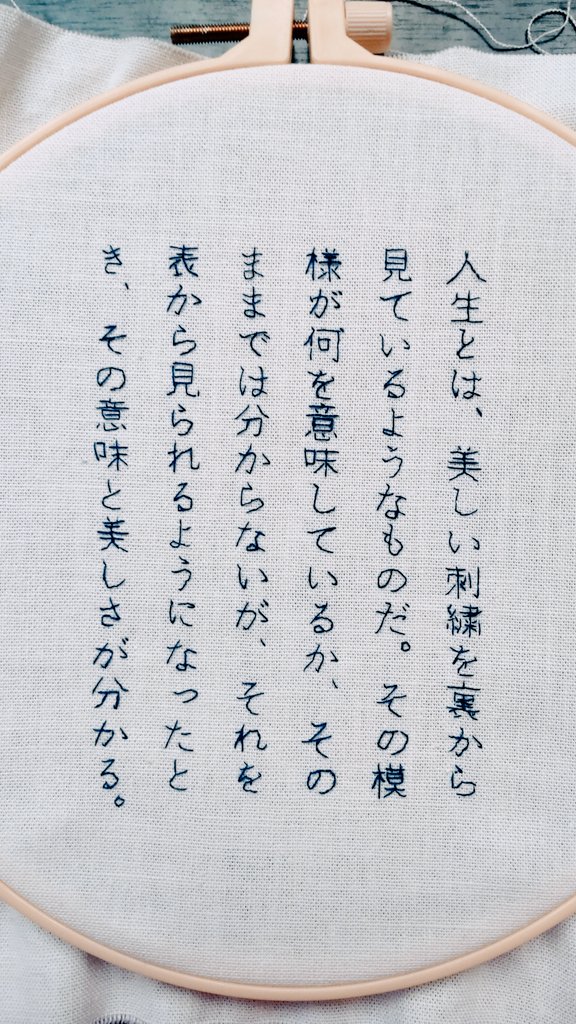 人生とは、美しい刺繍を裏から
見ているようなものだ。その模
様が何を意味しているか、その
ままでは分からないが、それを
表から見られるようになったと
き、その意味と美しさが分かる。